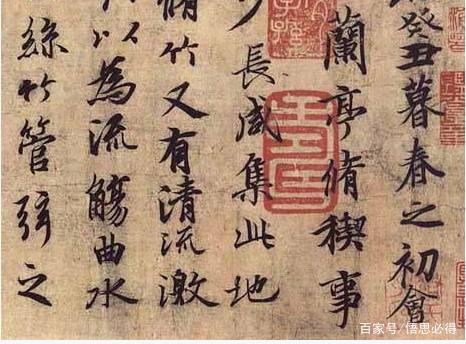 癸丑暮春之初會
蘭亭脩禊事
少長咸集此地
脩竹又有清流激
以為流觴曲水
絲竹管弦之
百家号/悟思必得